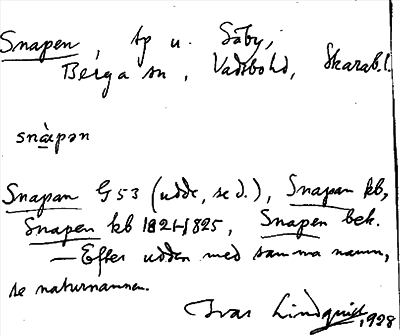 Snapen, tp u. Säby,
Berga sn, Vadsbo hd, Skarab. l.
snàpən
Snapan G 53 (udde, se d.), Snapan kb,
Snapen kb 1821-1825, Snapen bek.
— Efter udden med samma namn,
se naturnamnen.
Ivar Lindquist, 1928